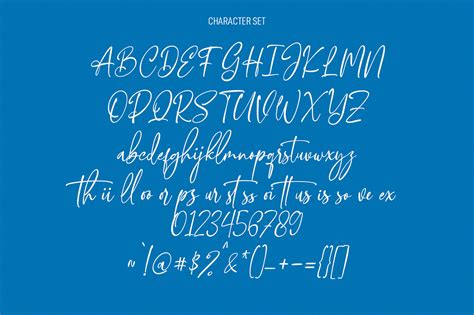 CHARACTER SET
ABCDEFGHIJKLMN
OPQRSTUVWXYZ
abcdefghijklmnopqrstuvwxyz
th ii ll oo or pz ur st ss oi tt us is so ve ex
0123456789
~`!@#$%^&*()_-+={}[]